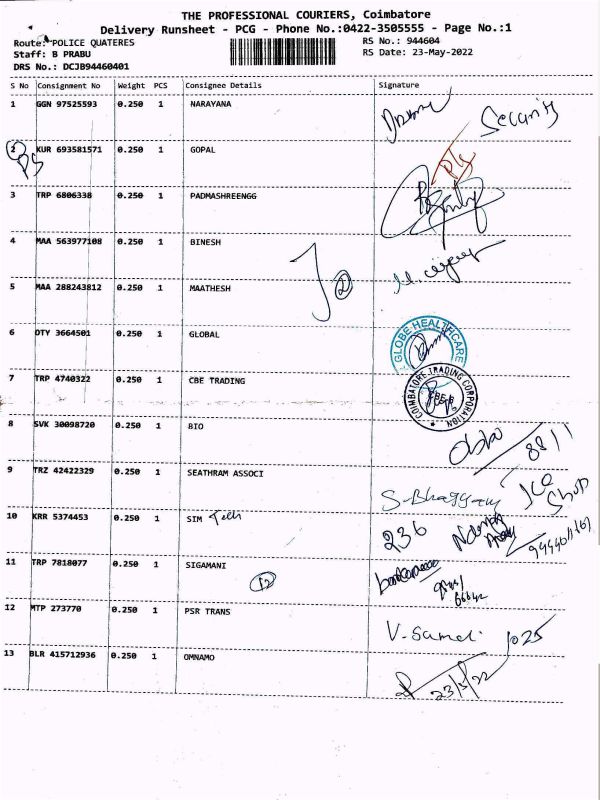 THE PROFESSIONAL COURIERS, Coimbatore
Delivery Runsheet - PCG - Phone No.:0422-3505555 - Page No.:1
Route: POLICE QUATERES RS No.: 944604
Staff: B PRABU RS Date: 23-May-2022
DRS No.: DCJB94460401
S No Consignment No Weight PCS Consignee Details Signature
1 GGN 97525593 0.250 1 NARAYANA Security
2 KUR 693581571 0.250 1 GOPAL
3 TRP 6806338 0.250 1 PADMASHREENGG
4 MAA 563977108 0.250 1 BINESH
5 MAA 288243812 0.250 1 MAATHESH
6 DTY 3664501 0.250 1 GLOBAL GLOBE HEALTHCARE
7 TRP 4740322 0.250 1 CBE TRADING COIMBATORE TRADING CORPORATION
8 SVK 30098720 0.250 1 BIO 8811
9 TRZ 42422329 0.250 1 SEATHRAM ASSOCI
10 KRR 5374453 0.250 1 SIM 236
11 TRP 7818077 0.250 1 SIGAMANI 12
12 MTP 273770 0.250 1 PSR TRANS 1025
13 BLR 415712936 0.250 1 OMNAMO 23/5/22